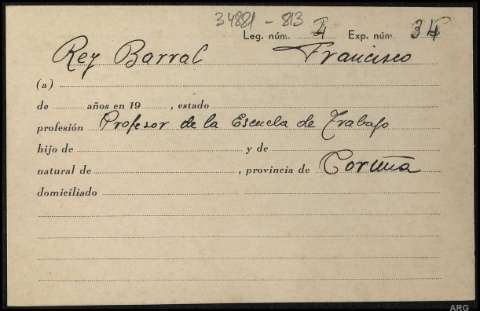 34881 - 813
Leg. núm. 4 Exp. núm. 34
Rey Barral Francisco
(a)
de años en 19 , estado
profesión Profesor de la Escuela de Trabajo
hijo de y de
natural de , provincia de Coruña
domiciliado
ARG